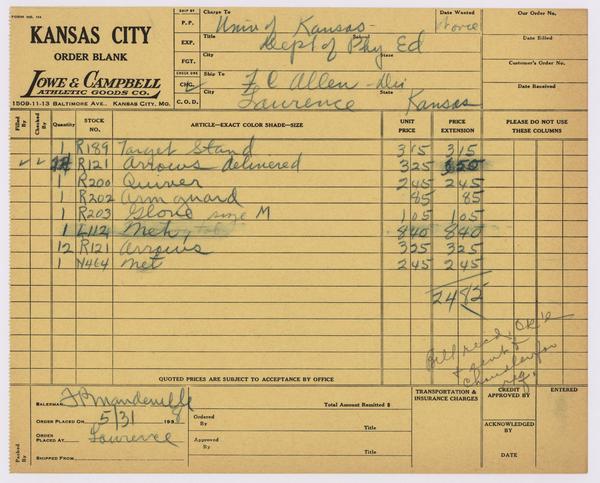 FORM NO. 114
KANSAS CITY
ORDER BLANK
LOWE & CAMPBELL
ATHLETIC GOODS CO.
1509-11-13 BALTIMORE AVE., KANSAS CITY, MO.
SHIP BY
P. P.
EXP.
FGT.
CHECK ONE
CHG. ✓
C. O. D.
Charge To Univ of Kansas -
Title School
Dept of Phy Ed
City State
Ship To F C Allen - Dir
Title School
Lawrence Kansas
City State
Date Wanted
at once
Our Order No.
Date Billed
Customer's Order No.
Date Received
Filled By Checked By Quantity STOCK NO. ARTICLE—EXACT COLOR SHADE—SIZE UNIT PRICE PRICE EXTENSION PLEASE DO NOT USE THESE COLUMNS
1 R189 Target Stand 315 315
✓ ✓ R121 Arrows delivered 325 650
1 R200 Quiver 245 245
1 R202 Arm guard 85 85
1 R203 Glove size M 105 105
1 L112 Net 840 840
12 R121 Arrows 325 325
1 N464 Net 245 245
2482
Bill read, OK'd
& sent to
Chancellor for
QUOTED PRICES ARE SUBJECT TO ACCEPTANCE BY OFFICE
SALESMAN F P Mandeville
ORDER PLACED ON 5/31 1938
ORDER PLACED AT Lawrence
SHIPPED FROM
Packed By
Total Amount Remitted $
Ordered By
Title
Approved By
Title
TRANSPORTATION & INSURANCE CHARGES
CREDIT APPROVED BY
ENTERED
ACKNOWLEDGED BY
DATE